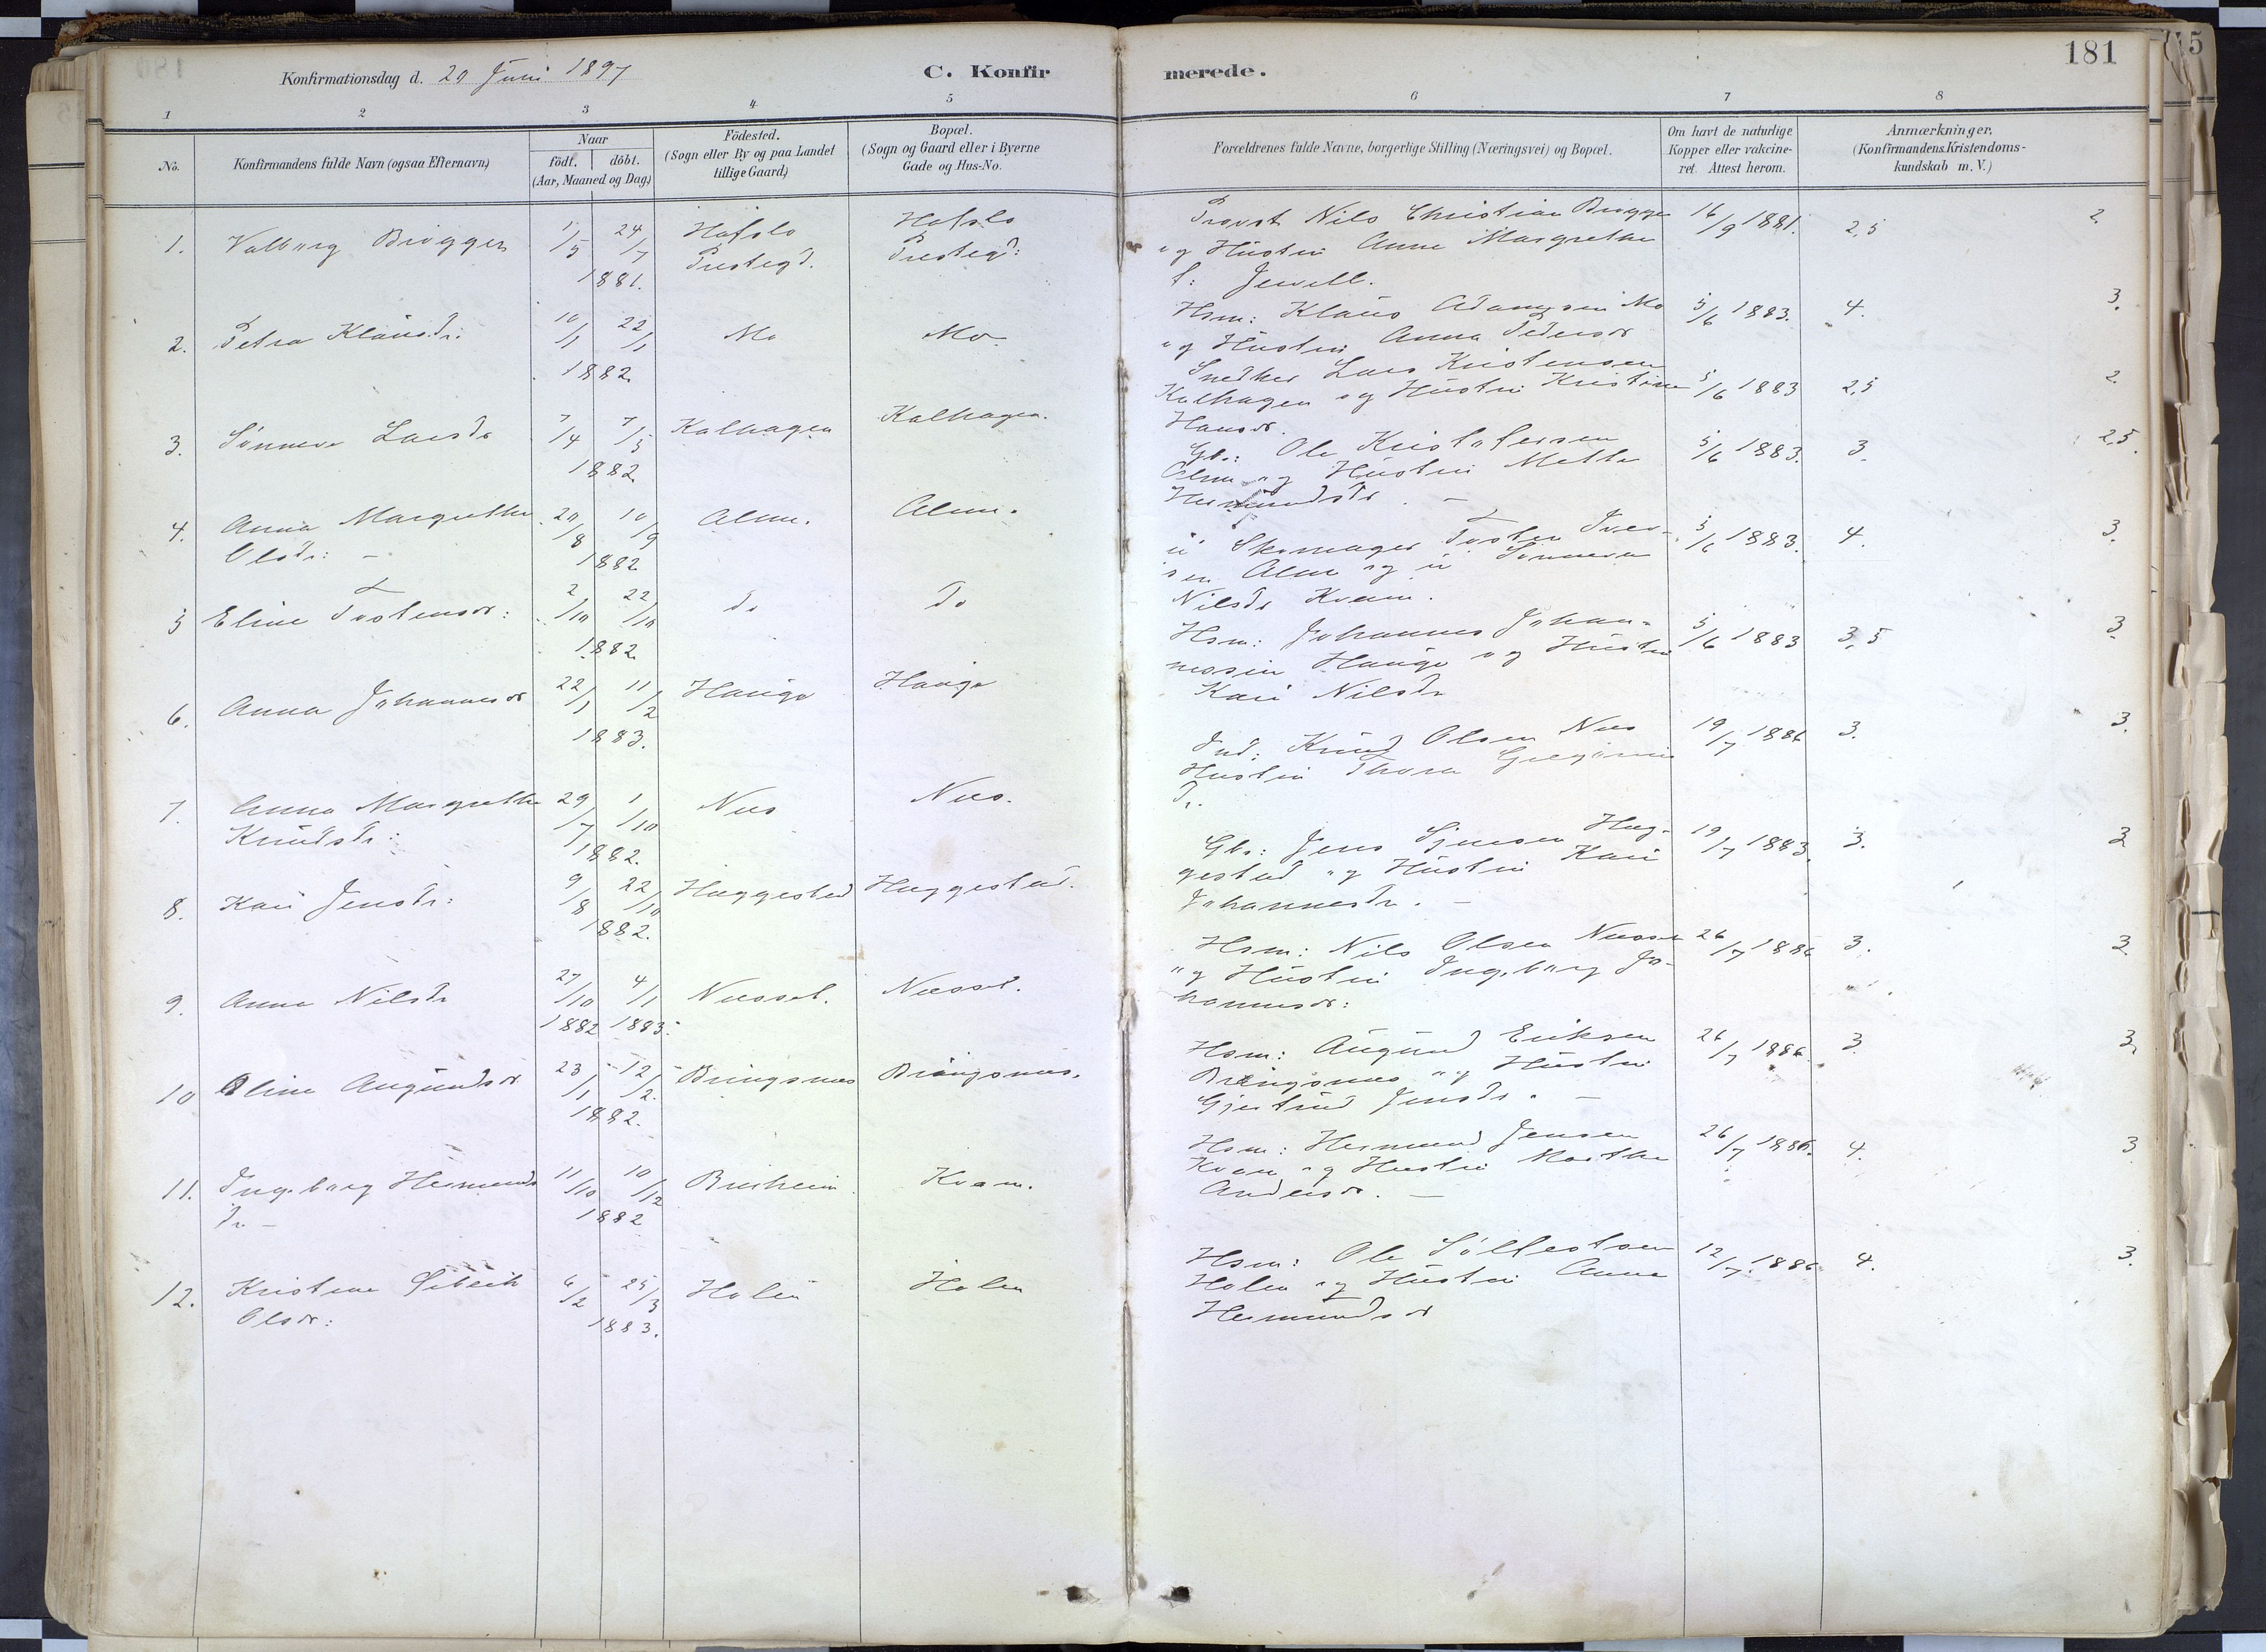 181
Konfirmationsdag d. 20 Juni 1897
C. Konfirmerede.
1 2 3 4 5 6 7 8
No.
Konfirmandens fulde Navn (ogsaa Efternavn)
Naar
født. døbt.
(Aar, Maaned og Dag)
Födested.
(Sogn eller By og paa Landet
tillige Gaard)
Bopæl.
(Sogn og Gaard eller i Byerne
Gade og Hus-No.
Forældrenes fulde Navne, borgerlige Stilling (Næringsvei) og Bopæl.
Om havt de naturlige
Kopper eller vakcine-
ret. Attest herom.
Anmærkninger,
(Konfirmandens Kristendoms-
kundskab m. V.)
1. Valborg Brøgger 1/5 24/7 1881. Hafslo Prestegd. Hafslo Presteg:
Provst Nils Christian Brøgger
og Hustru Anne Margrethe
f: Jewell.
16/9 1881. 2,5 2
2. Petra Klausdr: 10/1 22/1 1882. Mo Mo
Hsm: Klaus Adamsen Mo
og Hustru Anna Pedersdr
5/6 1883. 4. 3.
3. Sønneve Larsdr 7/4 7/5 1882 Kalhagen Kalhagen.
Snedker Lars Kristensen
Kalhagen og Hustru Kristine
Hansdr.
5/6 1883 2,5 2
4. Anna Margrethe
Olsdr: - 20/8 10/9 1882 Alme. Alme.
Gbr: Ole Kristofersen
Alme og Hustru Mette
Hermundsdr. -
5/6 1883. 3. 2,5.
5 Eline Tostensdr: 2/10 22/10 1882. do do
u Skomager Tosten Iver-
sen Alme og u Sønneva
Nilsdr Kvam.
5/6 1883. 4. 3.
6. Anna Johannesdr 22/1 11/2 1883. Hauge Hauge
Hsm: Johannes Johan-
nessen Hauge og Hustru
Kari Nilsdr
5/6 1883 3,5 3.
7. Anna Margrethe
Knudsdr: 29/7 1/10 1882. Nes Nes.
Ind: Knud Olsen Nes
Hustru Thora Gregorius
dr.
19/7 1886 3. 3.
8. Kari Jensdr: 9/8 22/10 1882. Heggestad Heggestad.
Gbr: Jens Sjursen Heg-
gestad og Hustru Kari
Johannesdr. -
19/7 1883. 3. 3
9. Anna Nilsdr 27/10 1882 4/1 1883. Nesset. Nesset.
Hsm: Nils Olsen Nesset
og Hustru Ingeborg Jo-
hannesdr:
26/7 1886 3. 3
10 Oline Augundsdr 23/1 12/2. 1882. Bringsnes Bringsnes.
Hsm: Augund Eriksen
Bringsnes og Hustru
Gjertrud Jensdr. -
26/7 1886. 3. 3,
11. Ingeborg Hermunds
dr - 11/10 10/12 1882 Beheim Kvam.
Hsm: Hermund Jensen
Kvam og Hustru Marthe
Andersdr. -
26/7 1886. 4. 3
12. Kristine
Olsdr: 6/2 25/3 1883. Holen Holen
Hsm: Ole Sølfestsen
Holen og Hustru Anna
Hermundsdr
12/7. 1886 4. 3.